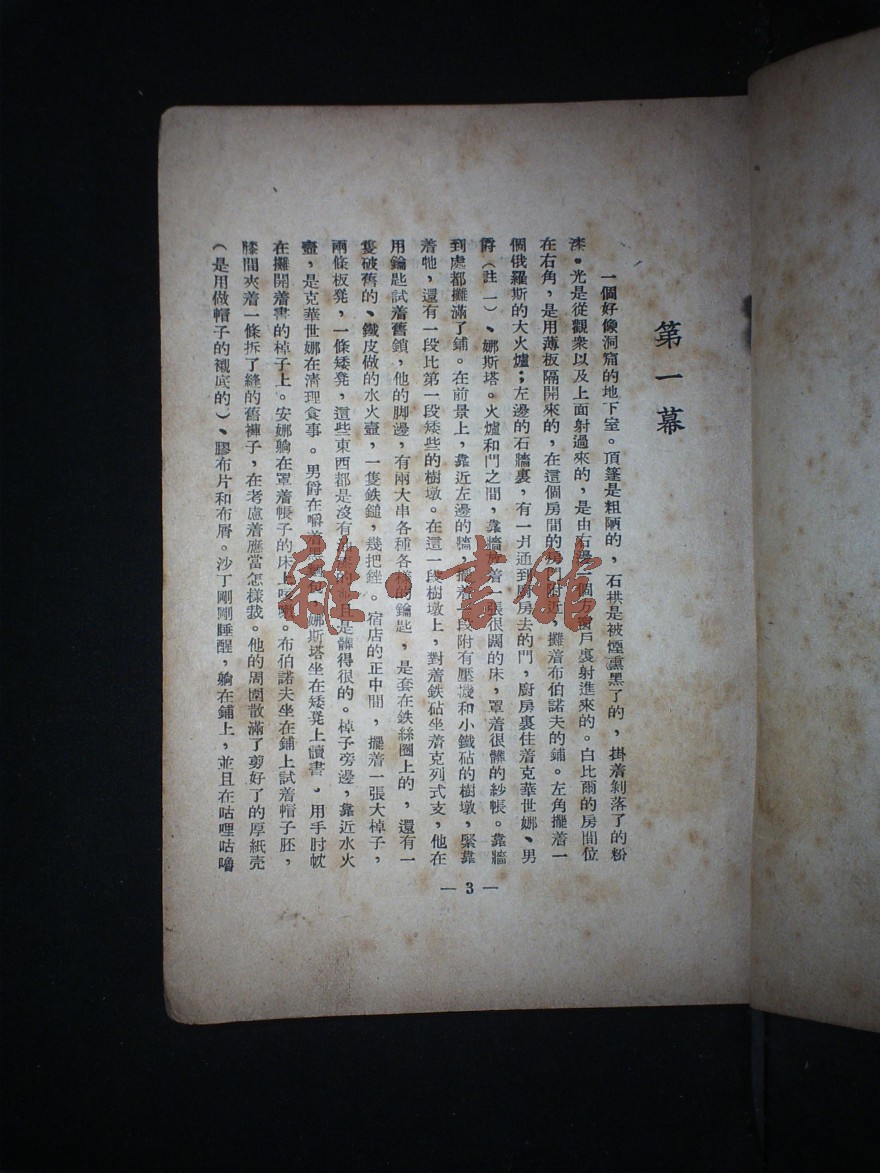 第一幕
一個好像洞窟的地下室。頂篷是粗陋的，石拱是被煙熏黑了的，掛着剝落了的粉
漆。光是從觀衆以及上面射過來的，是由右邊一個方窗戶裏射進來的。白比爾的房間位
在右角，是用薄板隔開來的，在這個房間的房門附近，攤着布伯諾夫的鋪。左角擺着一
個俄羅斯的大火爐；左邊的石牆裏，有一爿通到廚房去的門，廚房裏住着克華世娜、男
爵（註一）、娜斯塔。火爐和門之間，靠牆放着一張很闊的床，罩着很髒的紗帳。靠牆
到處都攤滿了鋪。在前景上，靠近左邊的牆，擺着一段附有壓機和小鐵砧的樹墩，緊靠
着牠，還有一段比第一段矮些的樹墩。在這一段樹墩上，對着鉄砧坐着克列式支，他在
用鑰匙試着舊鎖，他的脚邊，有兩大串各種各樣的鑰匙，是套在鉄絲圈上的，還有一
隻破舊的、鐵皮做的水火壺，一隻鉄鎚，幾把銼。宿店的正中間，擺着一張大棹子，
兩條板凳，一條矮凳，這些東西都是沒有油漆的並且是髒得很的。棹子旁邊，靠近水火
壺，是克華世娜在清理食事。男爵在嚼着黑麵包，娜斯塔坐在矮凳上讀書，用手肘枕
在攤開着書的棹子上。安娜躺在罩着帳子的床上咳嗽。布伯諾夫坐在鋪上試着帽子胚，
膝間夾着一條拆了縫的舊褲子，在考慮着應當怎樣裁。他的周圍散滿了剪好了的厚紙壳
（是用做帽子的襯底的）、膠布片和布屑。沙丁剛剛睡醒，躺在鋪上，並且在咕哩咕嚕
— 3 —
雜·書館